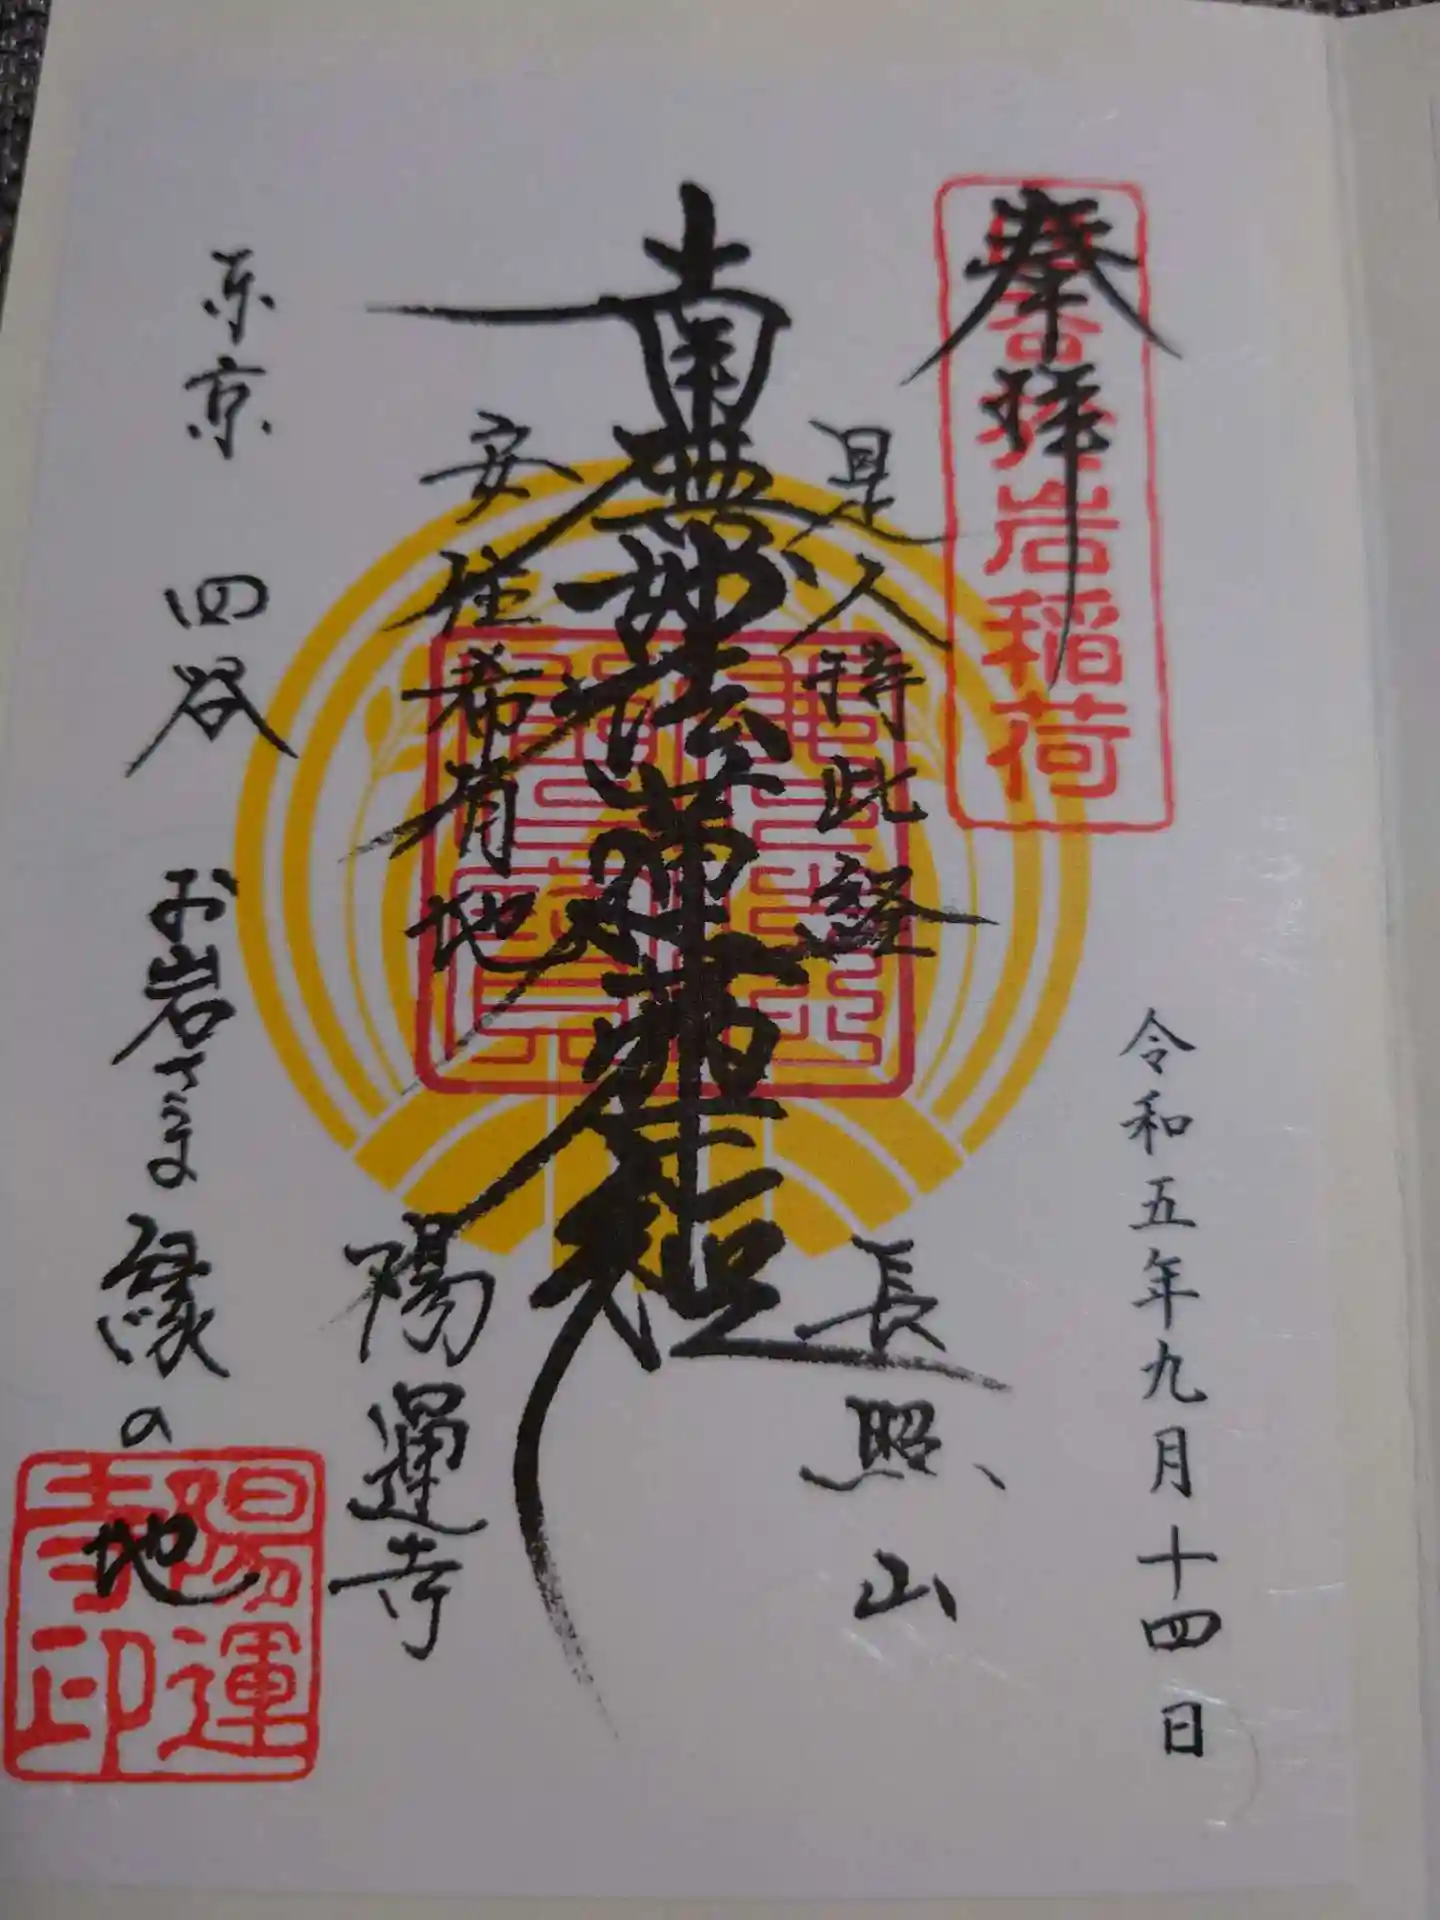 奉拝
岩稲荷
令和五年九月十四日
是人持此経
安住希有地
南無妙法蓮華経
長照山
陽運寺
東京 四谷 お岩さま縁の地
陽運寺印